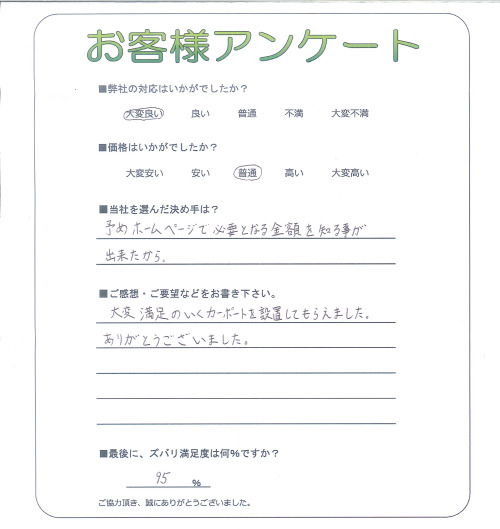 お客様アンケート
■弊社の対応はいかがでしたか？
大変良い 良い 普通 不満 大変不満
■価格はいかがでしたか？
大変安い 安い 普通 高い 大変高い
■当社を選んだ決め手は？
予めホームページで必要となる金額を知る事が
出来たから。
■ご感想・ご要望などをお書き下さい。
大変満足のいくカーポートを設置してもらえました。
ありがとうございました。
■最後に、ズバリ満足度は何％ですか？
95 ％
ご協力頂き、誠にありがとうございました。